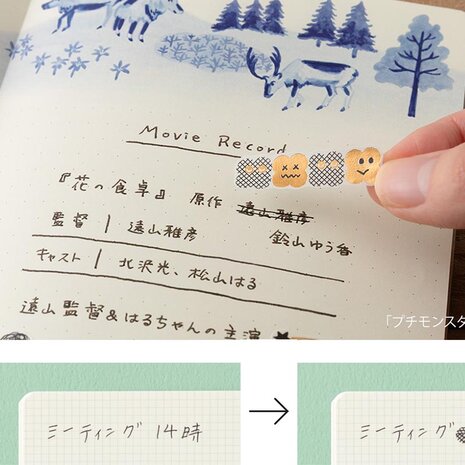 Movie Record
『花の食卓』 原作 遠山雅彦
監督 | 遠山雅彦 鈴山ゆう香
キャスト | 北沢光、松山はる
遠山監督&はるちゃんの主演
「プチモンスタ
ミーティング 14時
ミーティング